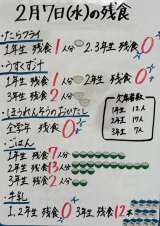 2月7日(水)の残食
・たらフライ
1年生 残食1人分 2.3年生 残食0
・うすくず汁
1年生 残食1人分 2年生 残食0
3年生 残食2人分
・ほうれんそうのおかかし
全学年 残食0
欠席者数
1年生 12人
2年生 17人
3年生 7人
・ごはん
1年生 残食7人分
2年生 残食13人分
3年生 残食2人分
・牛乳
1,2年生 残食0 3年生 残食12本